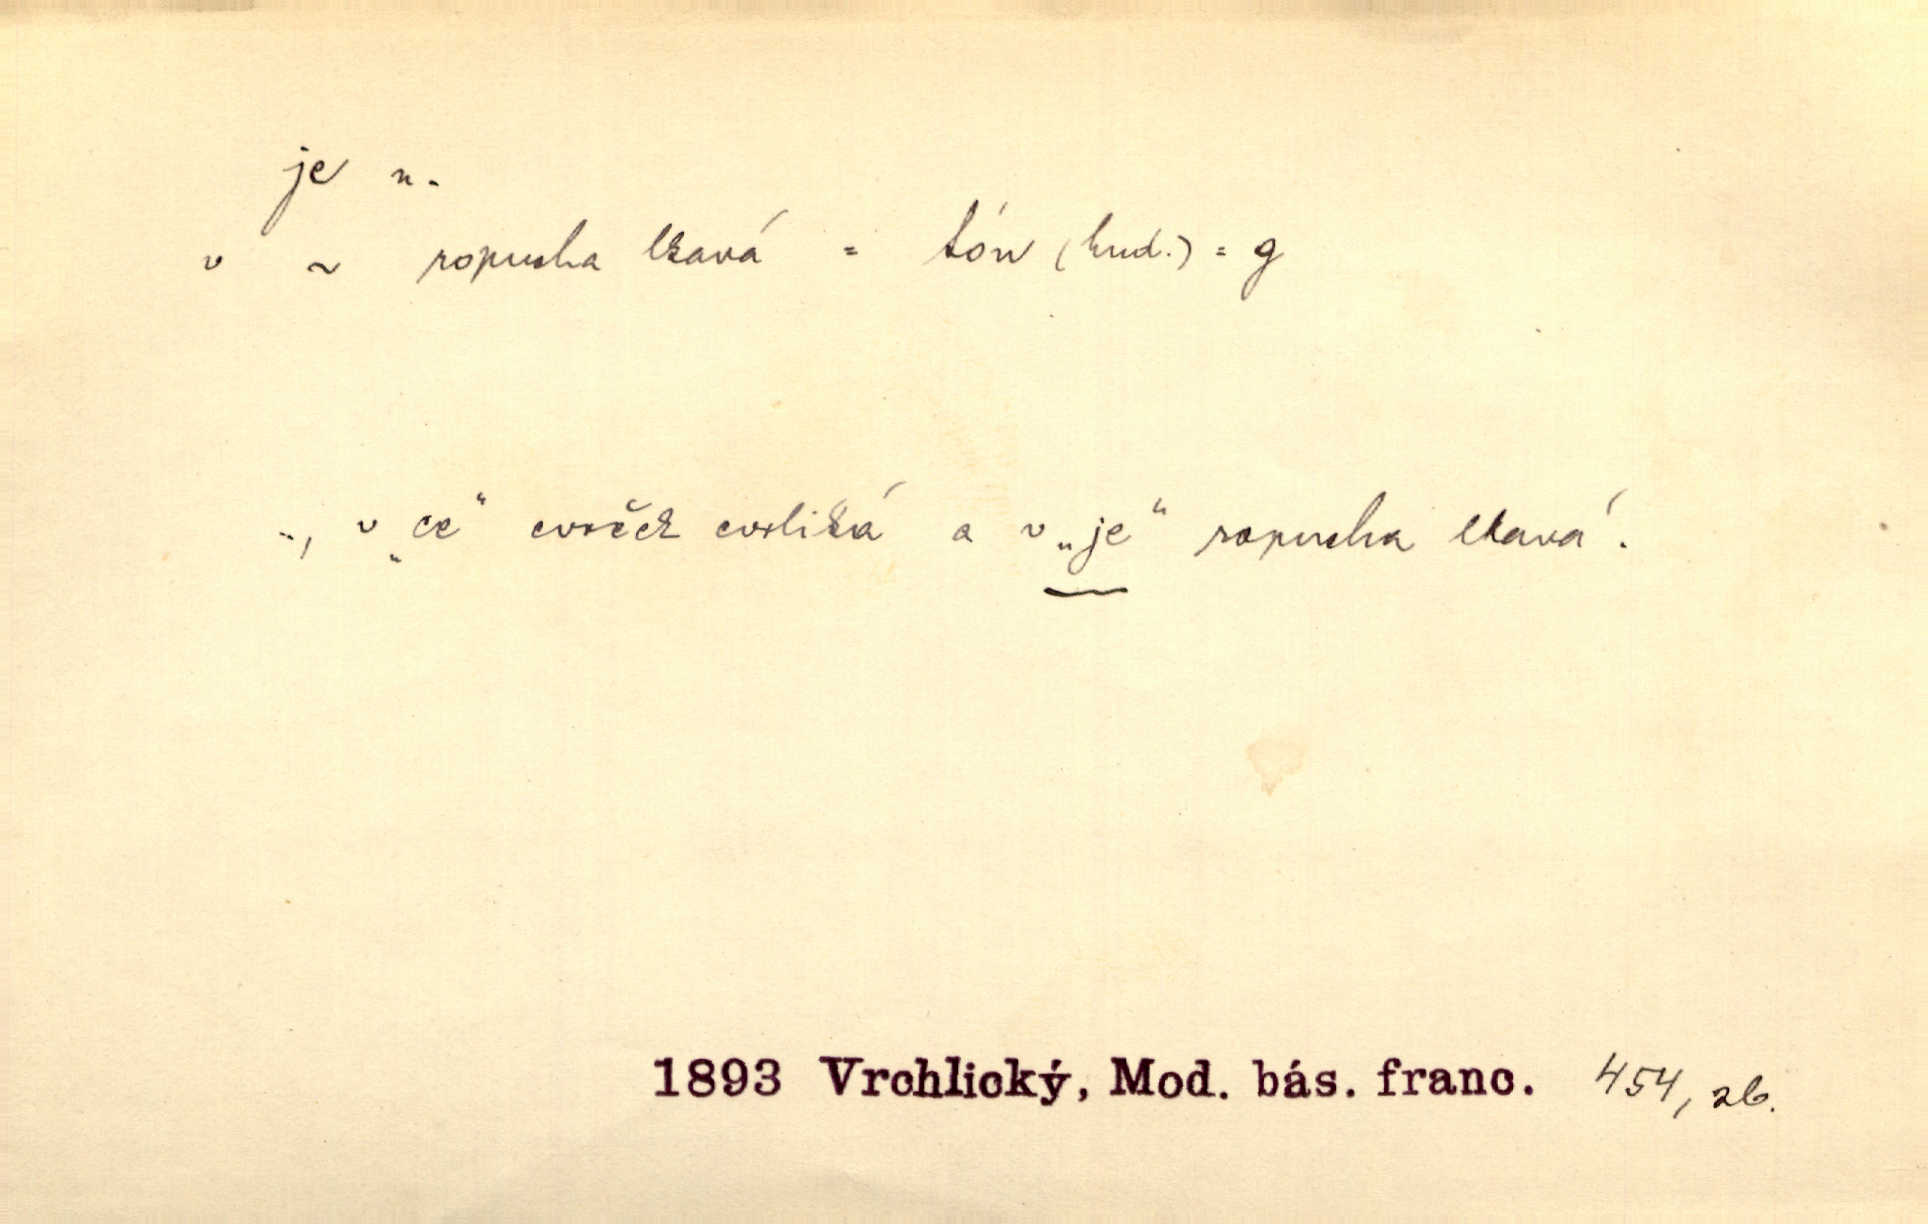 je n.
v ~ ropucha lkavá = tón (hud.) = g
.., v „ce“ cvrček cvrliká a v „je“ ropucha lkavá.
1893 Vrchlický, Mod. bás. franc. 454, zb.